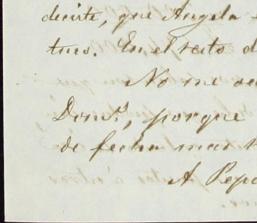 decirte, que Angela
tues. En el resto d
No me
Domo, porque
de fecha mas
A Pepe